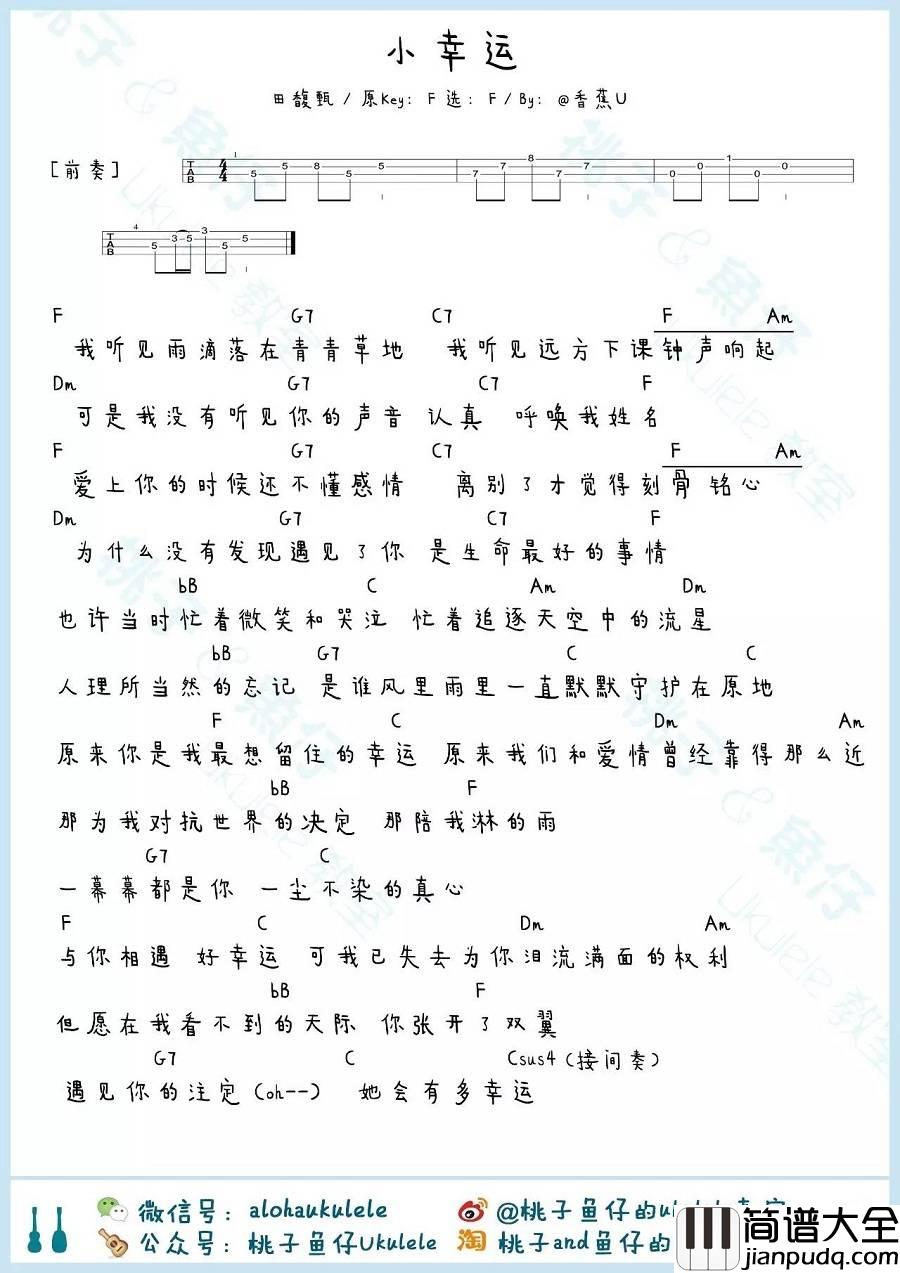 小幸运
田馥甄 / 原Key: F 选: F / By: @香蕉U
[前奏]
F G7 C7 F Am
我听见雨滴落在青青草地 我听见远方下课钟声响起
Dm G7 C7 F
可是我没有听见你的声音 认真 呼唤我姓名
F G7 C7 F Am
爱上你的时候还不懂感情 离别了才觉得刻骨 铭心
Dm G7 C7 F
为什么没有发现遇见了你 是生命最好的事情
bB C Am Dm
也许当时忙着微笑和哭泣 忙着追逐天空中的流星
bB G7 C C
人理所当然的忘记 是谁风里雨里一直默默守护在原地
F C Dm Am
原来你是我最想留住的幸运 原来我们和爱情曾经靠得那么近
bB F
那为我对抗世界的决定 那陪我淋的雨
G7 C
一幕幕都是你 一尘不染的真心
F C Dm Am
与你相遇 好幸运 可我已失去为你泪流满面的权利
bB F
但愿在我看不到的天际 你张开了双翼
G7 C Csus4 (接间奏)
遇见你的注定 (oh--) 她会有多幸运
微信号: alohaukulele @桃子鱼仔的
公众号: 桃子鱼仔Ukulele 淘 桃子and鱼仔的
简谱大全
jianpudq.com
桃子 & 魚仔
Ukulele 教室